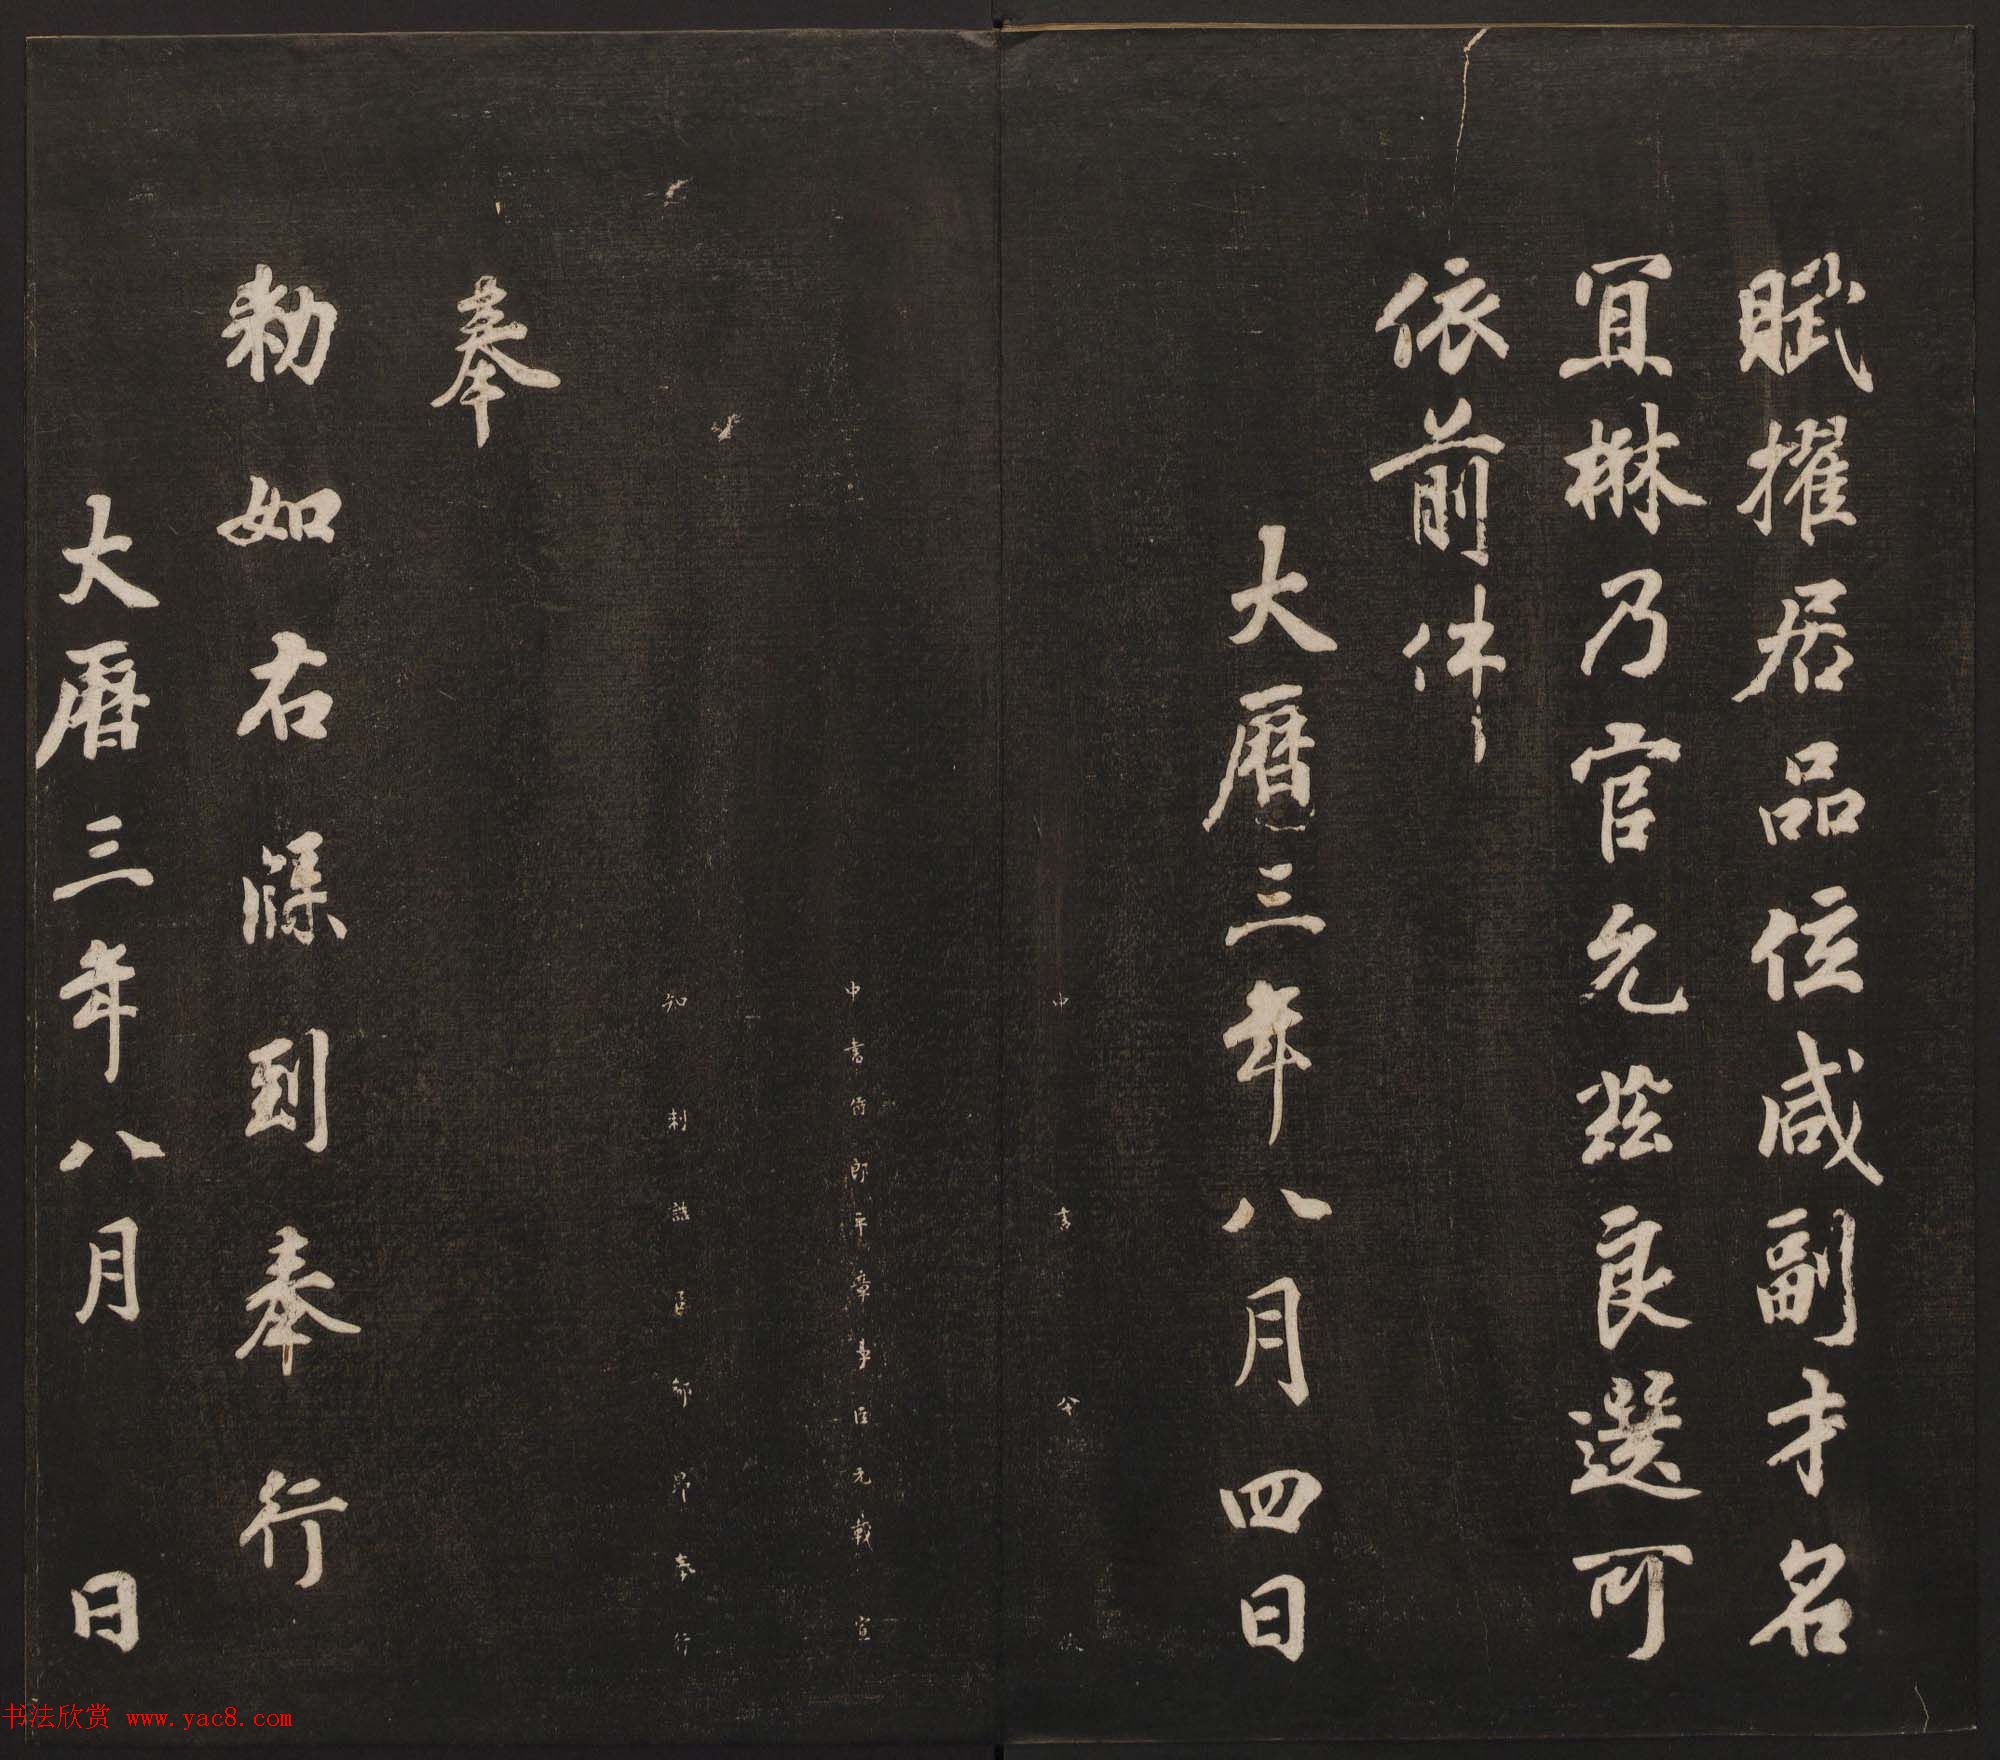 賦擢居品位咸副才名
宜楙乃官允茲良選可
依前件
大曆三年八月四日
中書令 使
中書侍郎平章事臣元載宣
知制誥臣郗昂奉行
奉
勑如右牒到奉行
大曆三年八月 日
书法欣赏 www.yac8.com